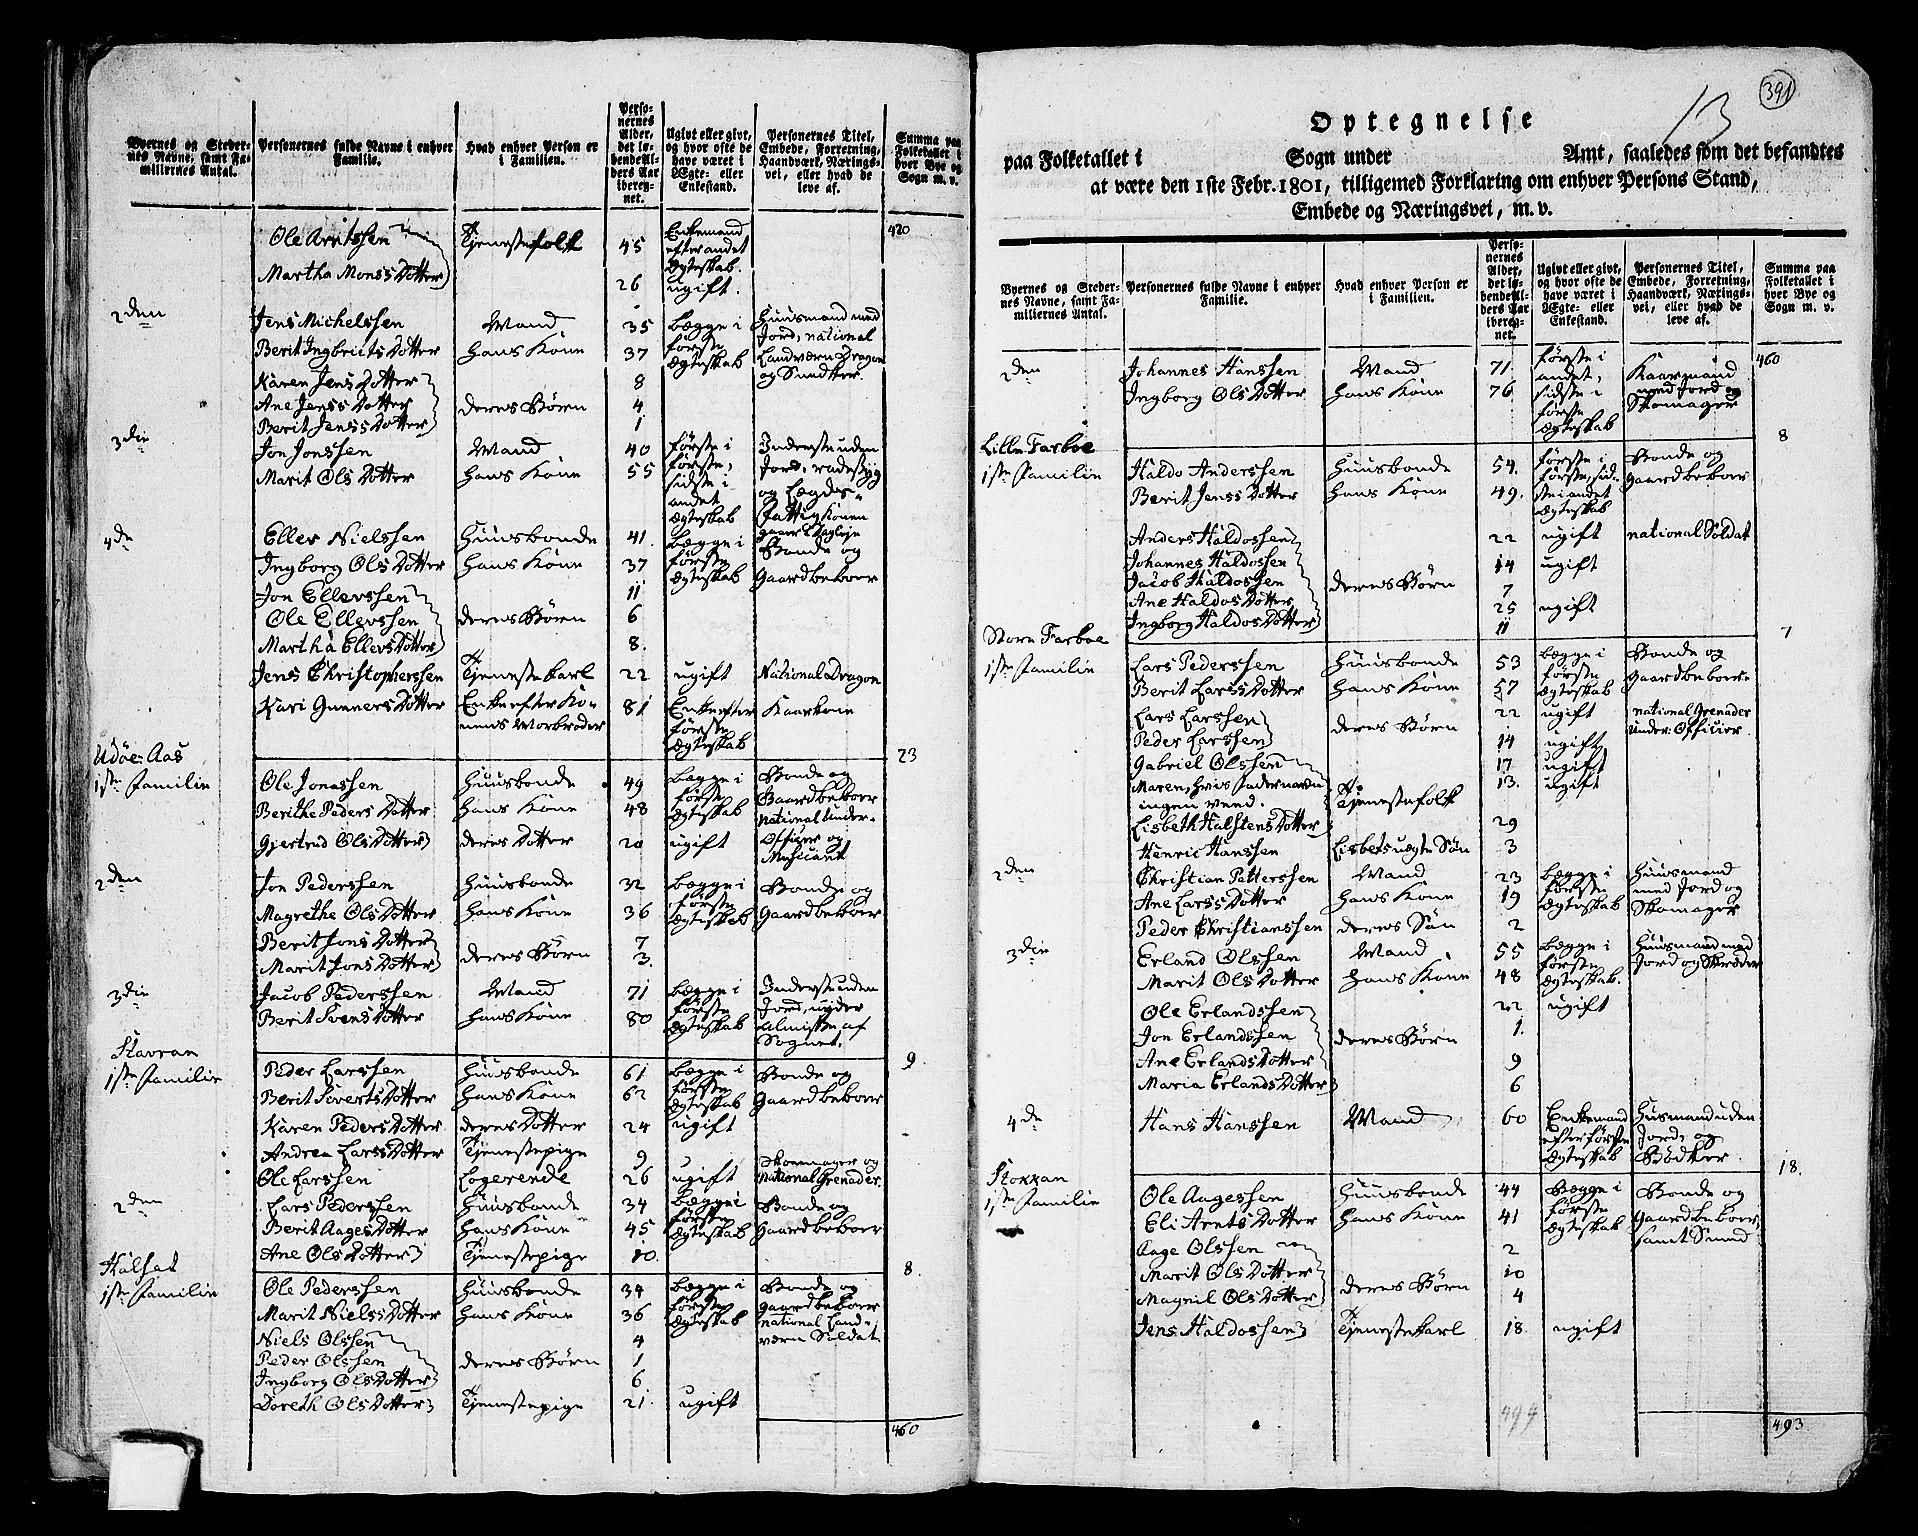 Byernes og Steder-
nes Navne, samt Fa-
miliernes Antal.
Personernes fulde Navne i enhver
Familie.
Hvad enhver Person er
i Familien.
Perso-
nernes
Alder,
det lø-
bende Al-
ders Aar
iberegn-
net.
Ugivt eller givt,
og hvor ofte de
have været i
Ægte- eller
Enkestand.
Personernes Titel,
Embede, Forretning,
Haandværk, Nærings-
vei, eller hvad de
leve af.
Summa paa
Folketallet i
hver Bye og
Sogn m. v.
420
Ole Arntssen Tjenestefolk 45 Enkemand efter andet Ægteskab.
Martha Monss Dotter 26 ugift.
2den Jens Michelssen Mand 35 begge i første Ægteskab Huusmand med Jord, national Landværn Dragon og Snedker.
Berit Ingbriits Dotter hans Kone 37
Karen Jenss Dotter 8
Ane Jenss Dotter deres Børn 4
Berit Jenss Dotter 1
3die Jon Jonssen Mand 40 første i første, sidste i andet Ægteskab Inderste uden Jord,
Marit Ols Dotter hans Kone 55
4de Eller Nielssen Huusbonde 41 begge i første Ægteskab Bonde og Gaardbeboer
Ingborg Ols Dotter hans Kone 37
Jon Ellevssen 11
Ole Ellevssen deres Børn 6
Martha Ellevs Dotter 8.
Jens Christopherssen Tjenestekarl 22 ugift National Dragon
Kari Gunners Dotter Enke efter Konens Morbroder 81 Enke efter første Ægteskab Kaarkone
23
Udøe Aas
1ste Familie Ole Jonassen Huusbonde 49 begge i første Ægteskab Bonde og Gaardbeboer national Under-Officier og Musicant
Berithe Peders Dotter hans Kone 48
Gjertrud Ols Dotter deres Dotter 20 ugift
2den Jon Pederssen Huusbonde 32 begge i første Ægteskab Bonde og Gaardbeboer
Magrethe Ols Dotter hans Kone 36
Berit Jons Dotter 7
Marit Jons Dotter deres Børn 3.
3die Jacob Pederssen Mand 71 begge i første Ægteskab Inderste uden Jord, nyder Almisse af Sognet.
Berit Svens Dotter hans Kone 80
9
Stavran
1ste Familie Peder Larssen Huusbonde 61 begge i første Ægteskab Bonde og Gaardbeboer
Berit Siverts Dotter hans Kone 62
Karen Peders Dotter deres Dotter 24 ugift
Andrea Larss Dotter Tjenestepige 9
Ole Larssen Logerende 26 ugift Skoemager og National Grenader.
2den Lars Pederssen Huusbonde 34 begge i første Ægteskab Bonde og Gaardbeboer
Berit Aages Dotter hans Kone 45
Ane Ols Dotter Tjenestepige 10.
8.
Kalset
1ste Familie Ole Pederssen Huusbonde 34 begge i første Ægteskab Bonde og Gaardbeboer national Landværn Soldat.
Marit Nielss Dotter hans Kone 36
Niels Olssen 4
Peder Olssen deres Børn 1
Ingborg Ols Dotter 6
Doreth Ols Dotter Tjenestepige 21. ugift
460
391
13
Optegnelse
paa Folketallet i Sogn under Amt, saaledes som det befandtes
at være den 1ste Febr. 1801, tilligemed Forklaring om enhver Persons Stand,
Embede og Næringsvei, m. v.
Byernes og Steder-
nes Navne, samt Fa-
miliernes Antal.
Personernes fulde Navne i enhver
Familie.
Hvad enhver Person er
i Familien.
Perso-
nernes
Alder,
det lø-
bende Al-
ders Aar
iberegn-
net.
Ugivt eller givt,
og hvor ofte de
have været i
Ægte- eller
Enkestand.
Personernes Titel,
Embede, Forretning,
Haandværk, Nærings-
vei, eller hvad de
leve af.
Summa paa
Folketallet i
hver Bye og
Sogn m. v.
460
2den Johannes Hanssen Mand 71. første i andet, sidste i første Ægteskab Kaarmand med Jord og Skomager
Ingborg Ols Dotter hans Kone 76
8
Lille Farboe
1ste Familie Haldo Anderssen Huusbonde 54. første i første, sidste i andet Ægteskab Bonde og Gaardbeboer
Berit Jenss Dotter hans Kone 49.
Anders Haldossen 22 ugift national Soldat
Johannes Haldossen 14 ugift
Jacob Haldossen deres Børn 7
Ane Haldos Dotter 25 ugift
Ingborg Haldos Dotter 11
7
Store Farboe
1ste Familie Lars Pederssen Huusbonde 53 begge i første Ægteskab Bonde og Gaardbeboer.
Berit Larss Dotter hans Kone 57
Lars Larssen deres Børn 22 ugift national Grenader Under-Officier
Peder Larssen 14 ugift
Gabriel Olssen 17 ugift
Maren, hvis Fadernavn ingen veed. Tjenestefolk 13. ugift
Lisbeth Halstens Dotter 29
Henric Hanssen Lisbets uægte Søn 3
2den Christian Petterssen Mand 23 begge i første Ægteskab Huusmand med Jord og Skomager
Ane Larss Dotter hans Kone 19
Peder Christianssen deres Søn 2
3die Erland Olssen Mand 55 begge i første Ægteskab. Huusmand med Jord og Skræder
Marit Ols Dotter hans Kone 48
Ole Erlandssen 22 ugift
Jon Erlandssen deres Børn 1.
Ane Erlands Dotter 9
Maria Erlands Dotter 6
4de Hans Hanssen Mand 60 Enkemand efter første Ægteskab Husmand uden Jord, og Bødker.
18.
Stokkan
1ste Familie Ole Aagessen Huusbonde 44 Begge i første Ægteskab Bonde og Gaardbeboer, samt Smed
Eli Arnts Dotter hans Kone 41
Aage Olssen 2
Marit Ols Dotter deres Børn 10
Magnil Ols Dotter 4
Jens Haldossen Tjenestekarl 18. ugift
494
493